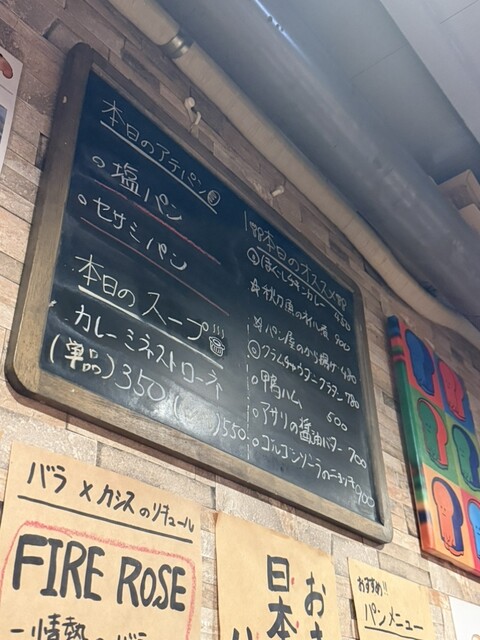 本日のアテパン
○塩パン
○セサミパン
本日のスープ
カレーミネストローネ
(単品)350 550
本日のオススメ
カレー 980
☆秋刀魚のオイル煮 700
☆パン屋のから揚げ 480
クラムチャウダーグラタン 780
○鴨ハム 600
○アサリの醤油バター 700
○ゴルゴンゾーラのニョッキ 900
バラ×カシスのリキュール
FIRE ROSE
情熱の
お
日本
おすすめ!!
パンメニュー